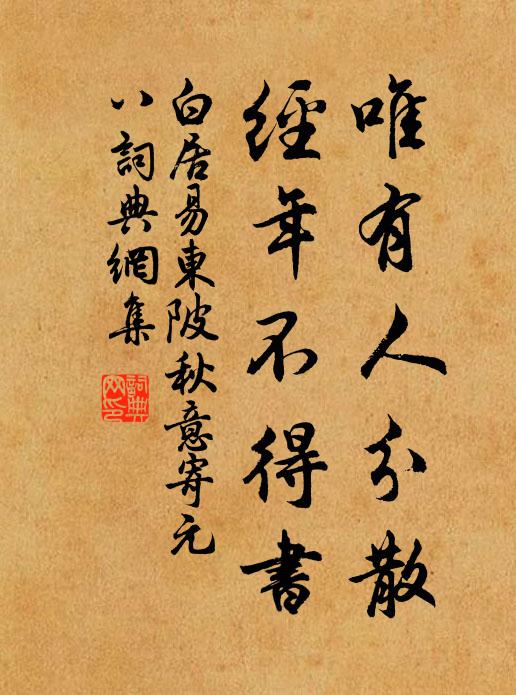 唯有人分散
經年不得書
白居易東陂秋意寄元
八詞典網集
詞典
网印